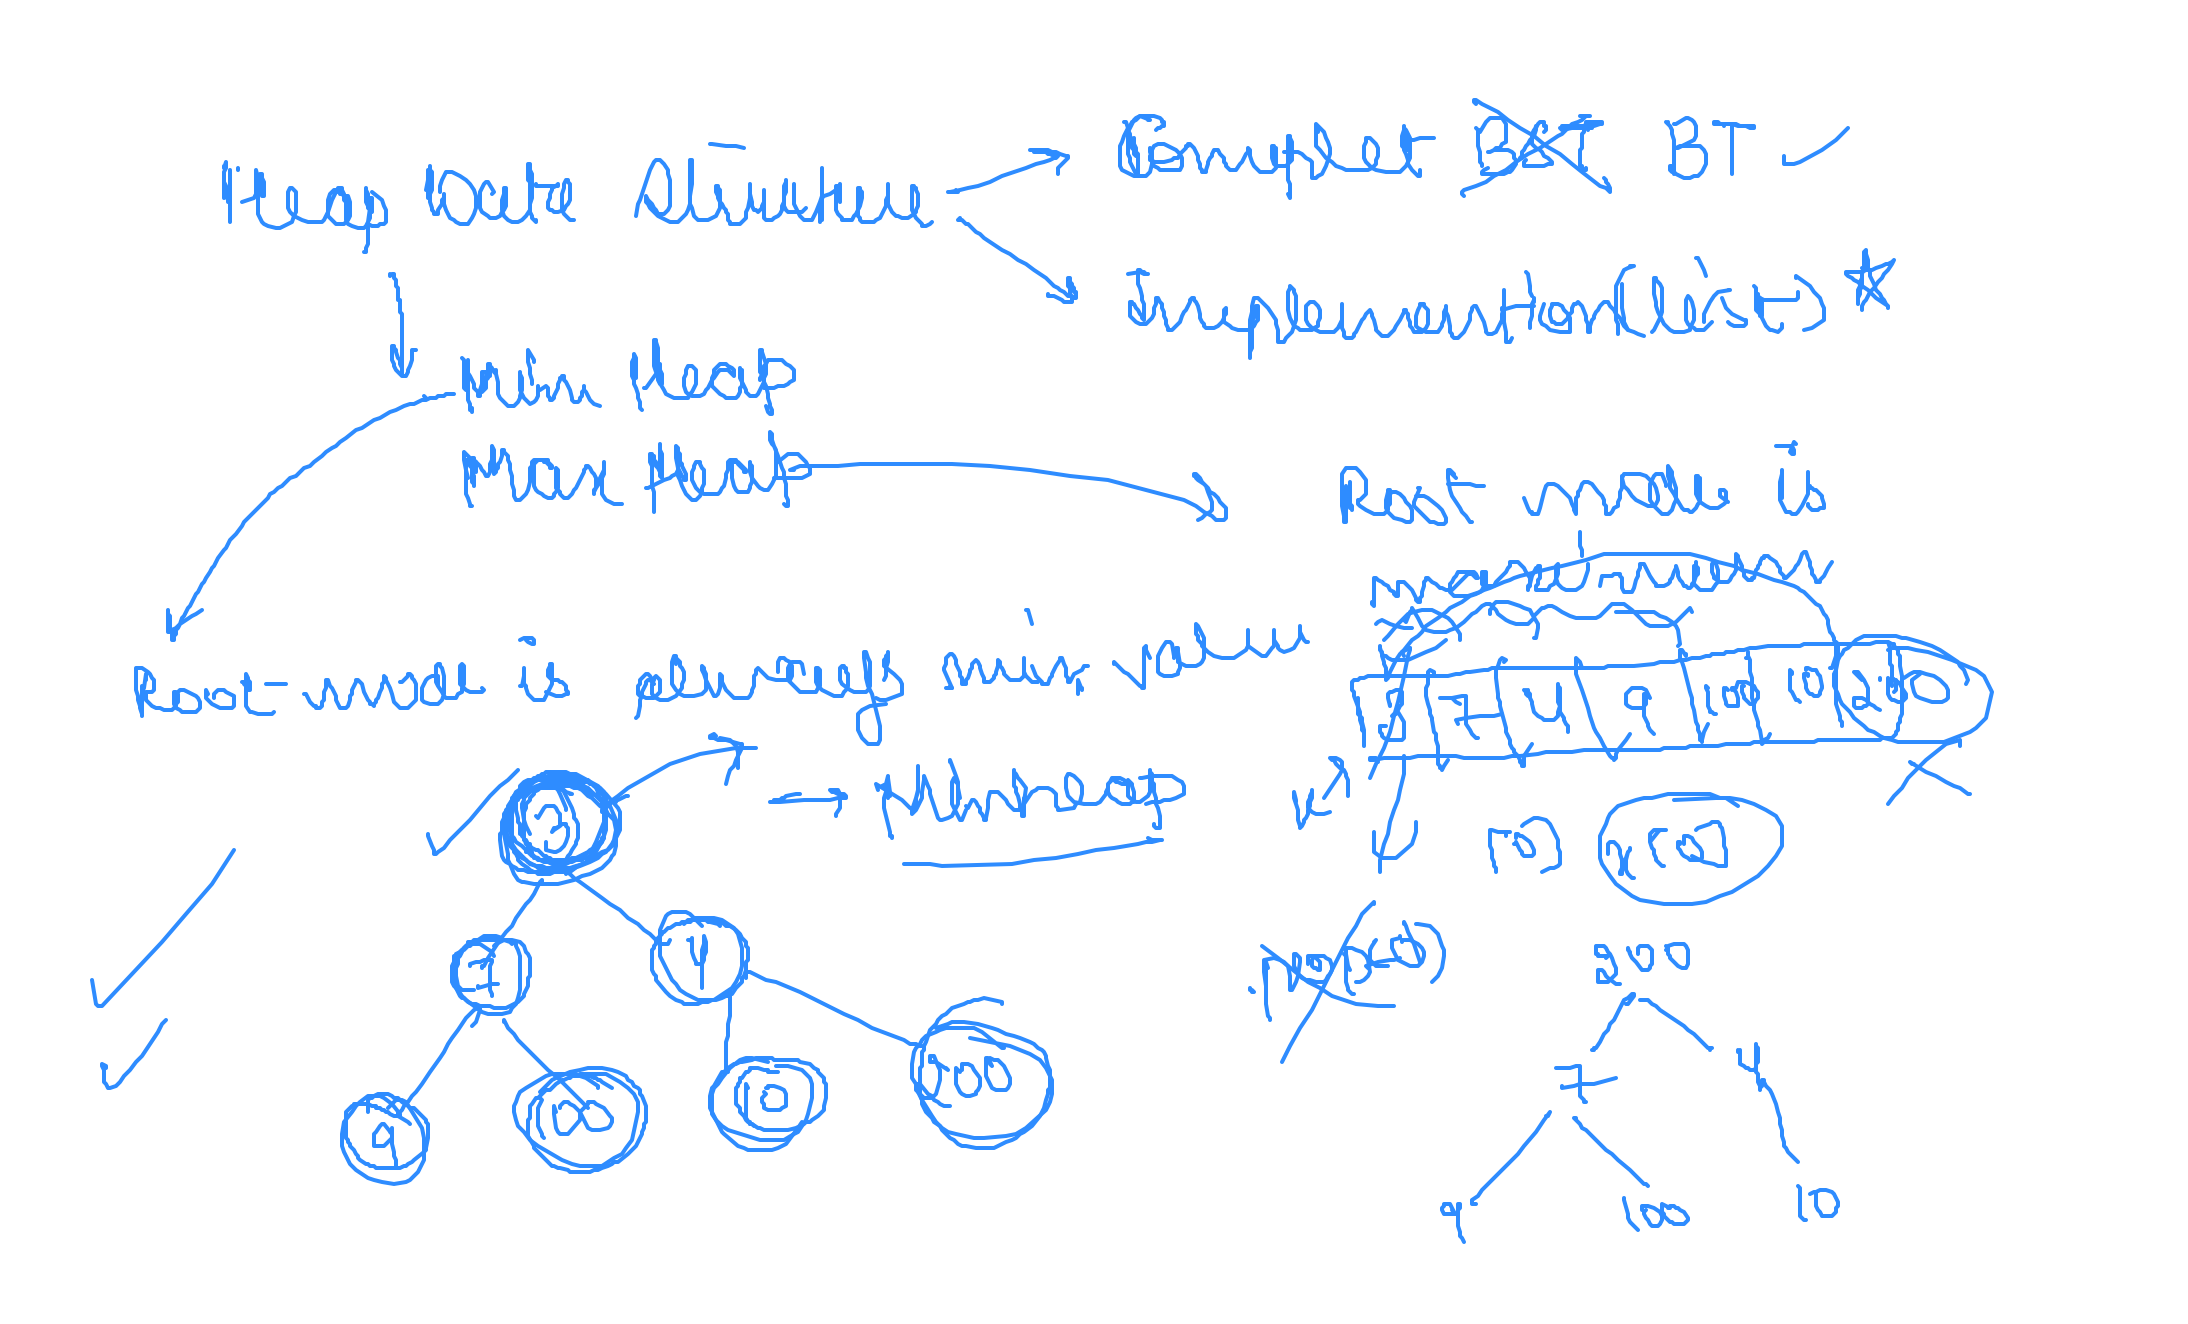 Heap Data Structure
Complet BST BT
Implemention (list)
Min Heap
Max Heap
Root node is
maximum
Root node is always min value
3 7 4 9 100 10 200
3
→ Minheap
x[0]
7 4
.pop(0)
200
9 100 10 200
7 4
9 100 10